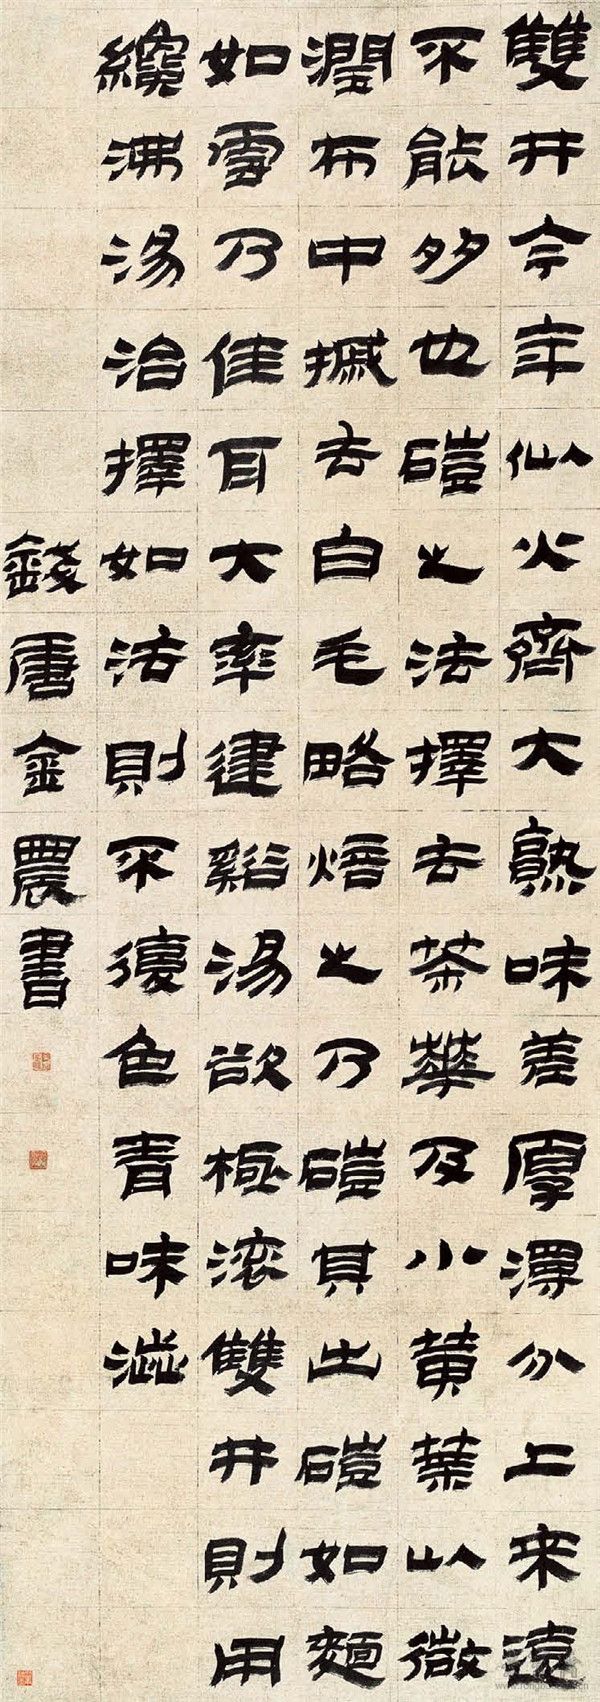 雙井今年似火齊大熟味差厚澤分上来遠
不能多也磑之法擇去茶華及小黄葉以微
潤布中摵去白毛略焙之乃磑其出磑如麵
如雪乃佳耳大率建谿湯欲極滚雙井則用
纔沸湯治擇如法則不復色青味澁
錢唐金農書